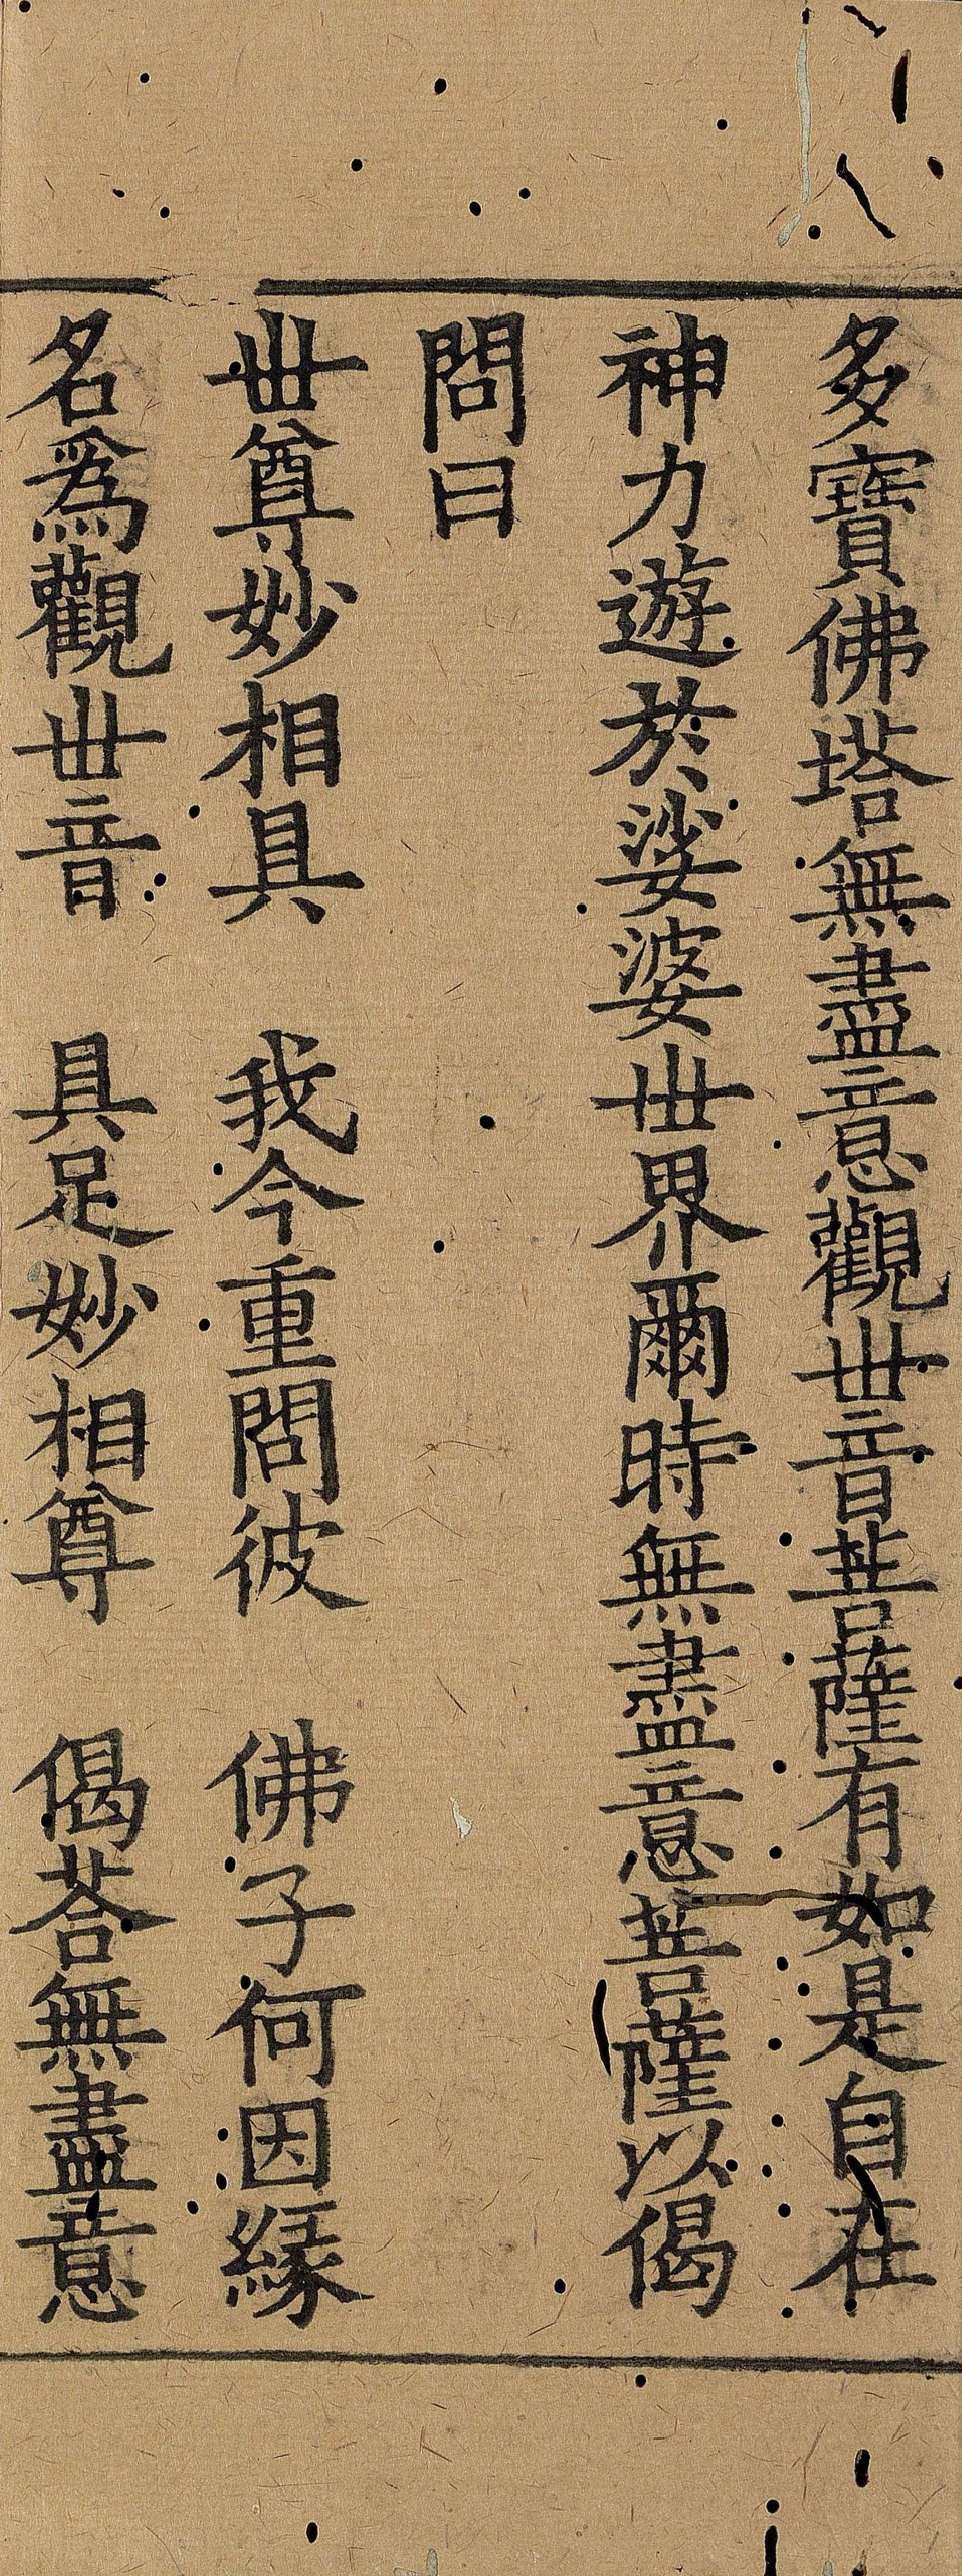 多寶佛塔無盡意觀世音菩薩有如是自在
神力遊於娑婆世界爾時無盡意菩薩以偈
問曰
世尊妙相具　我今重問彼　佛子何因緣
名爲觀世音　具足妙相尊　偈荅無盡意